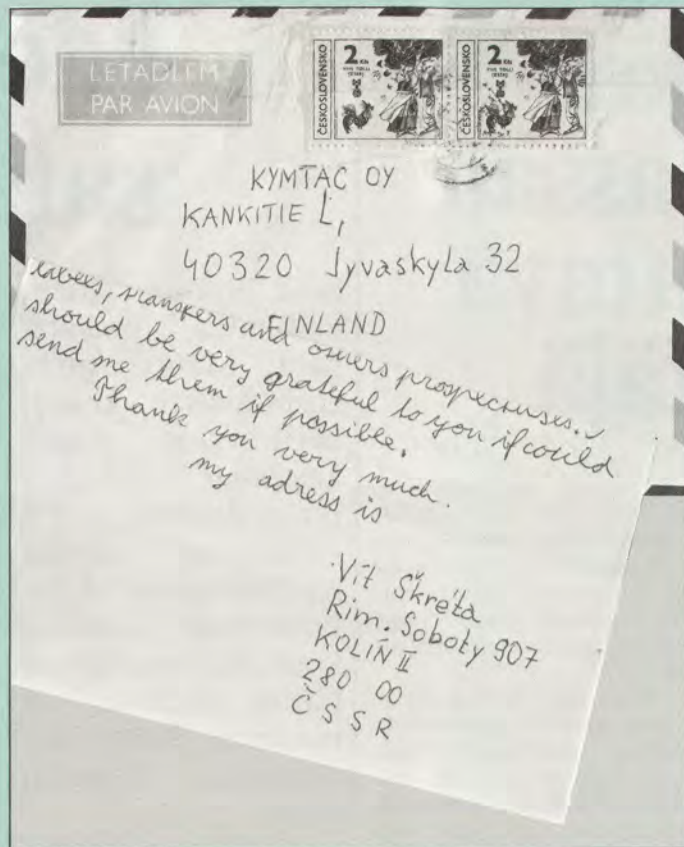 LETADLEM
PAR AVION
ČESKOSLOVENSKO
2 Kčs
ČESKOSLOVENSKO
2 Kčs
KYMTAC OY
KANKITIE L,
40320 Jyvaskyla 32
FINLAND
and prospectuses.
should be very grateful to you if could
send me them if possible.
Thank you very much.
my adress is
Vít Škréta
Rim. Soboty 907
KOLÍN II
280 00
ČSSR